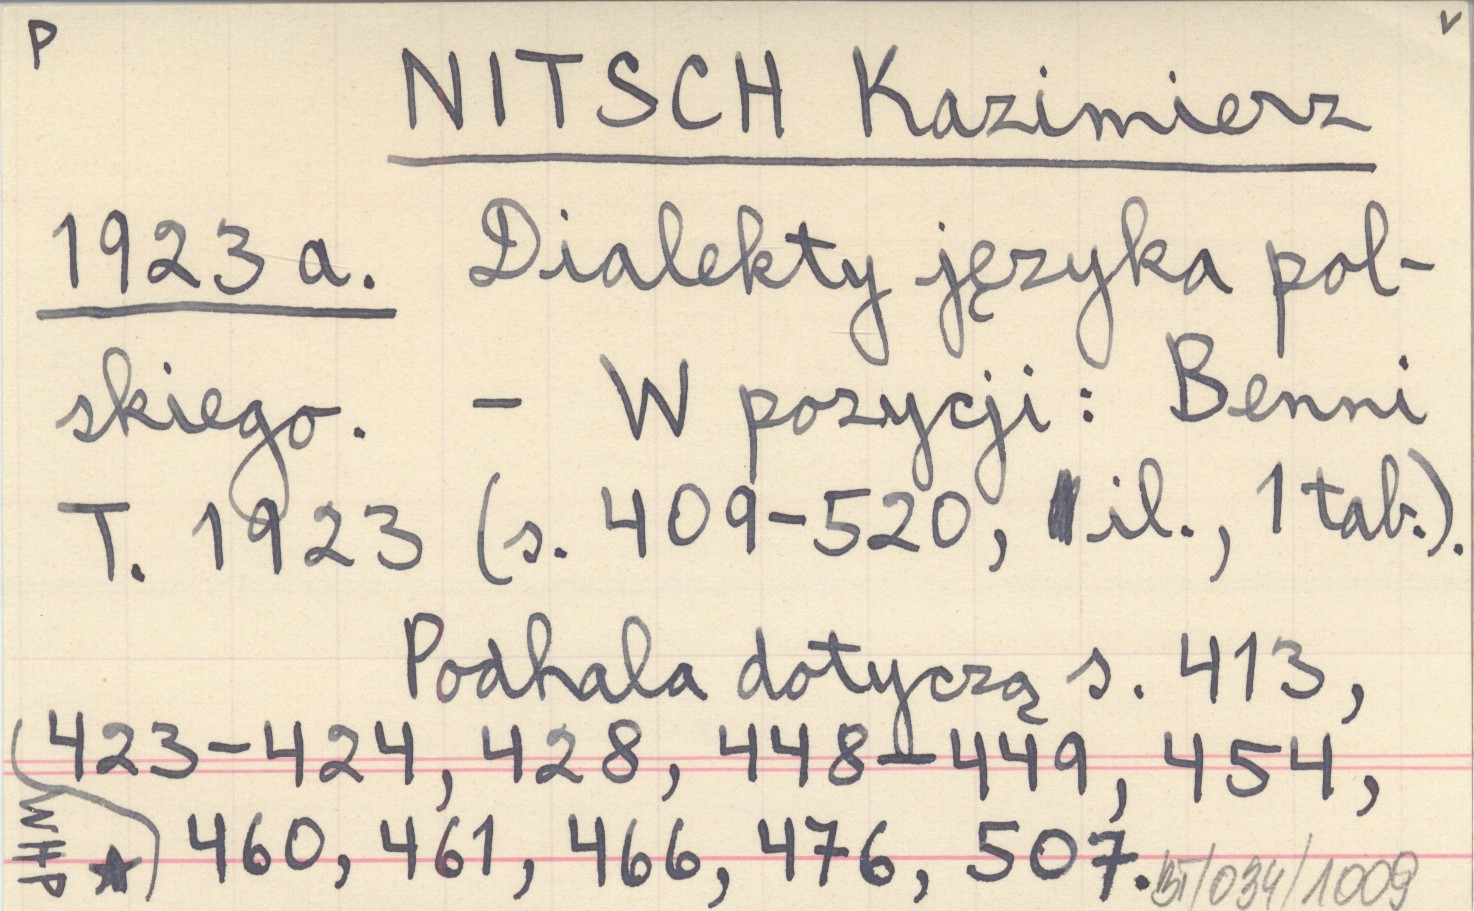 P v
NITSCH Kazimierz
1923 a. Dialekty języka pol-
skiego. - W pozycji: Benni
T. 1923 (s. 409-520, il., 1 tab.).
Podhala dotyczą s. 413,
423-424, 428, 448-449, 454,
460, 461, 466, 476, 507.
PTHW
BT/034/1009